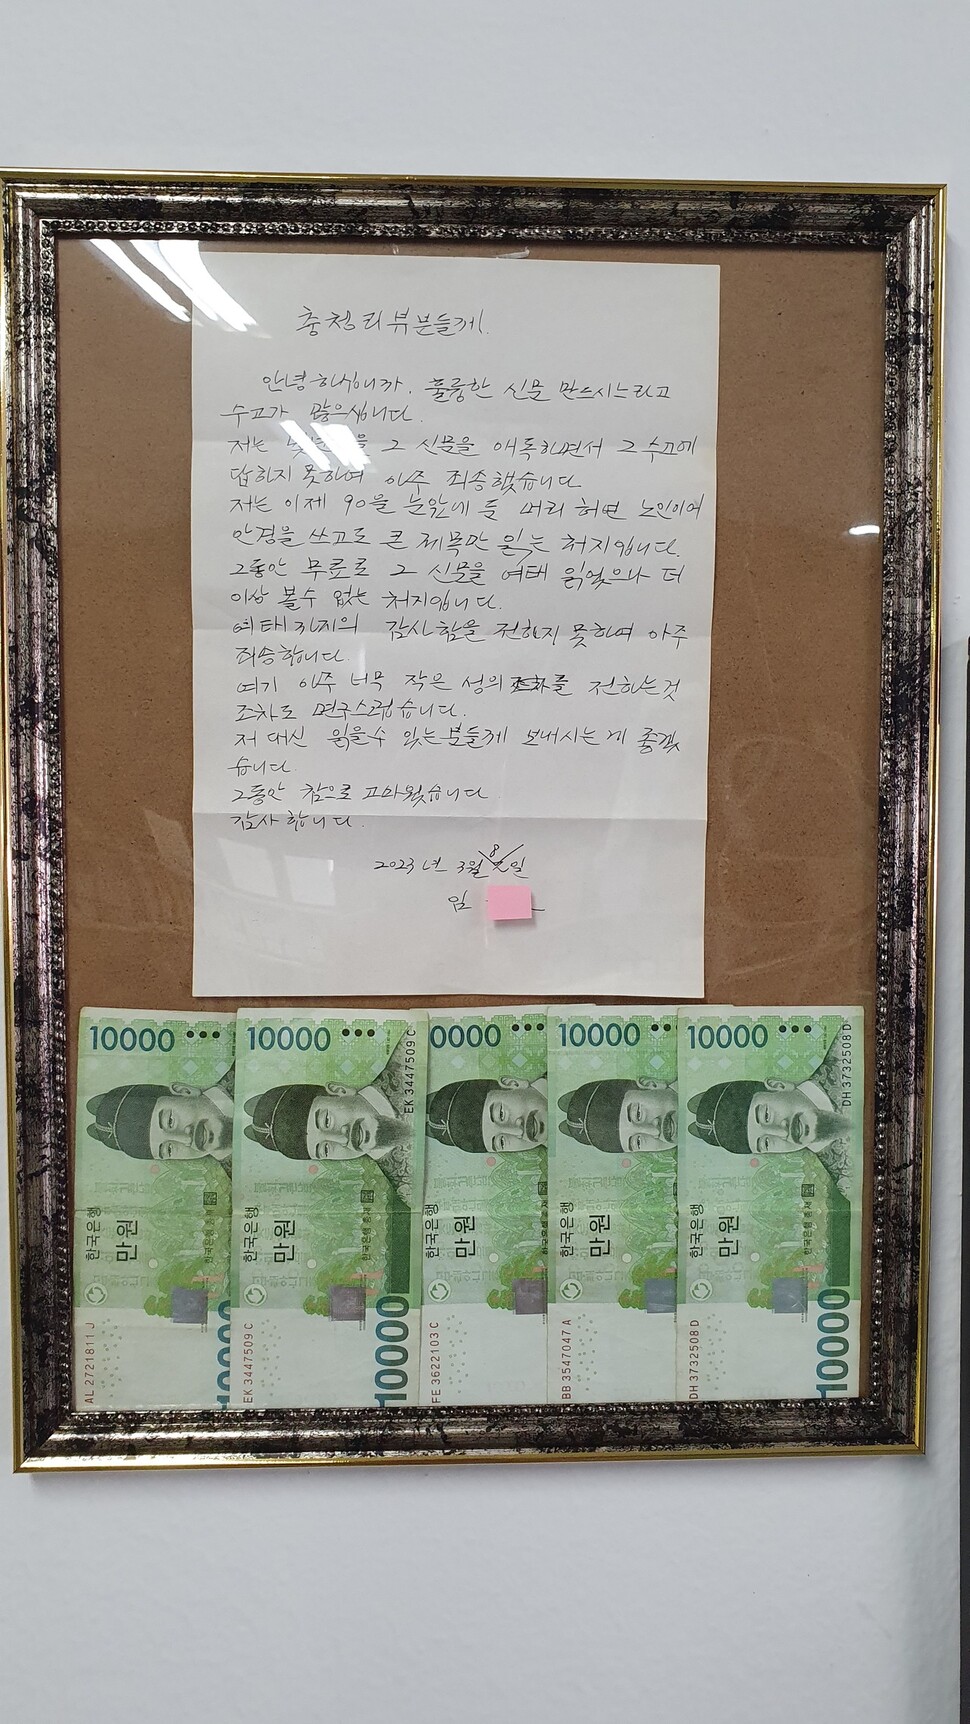 충청리뷰분들께.
안녕하십니까. 훌륭한 신문 만드시느라고
수고가 많으십니다.
저는 그 신문을 애독하면서 그 수고에
답하지 못하여 아주 죄송했습니다.
저는 이제 90을 눈앞에 둔 머리 허연 노인이어
안경을 쓰고도 큰 제목만 읽는 처지입니다.
그동안 무료로 그 신문을 여태 읽었으나 더
이상 볼 수 없는 처지입니다.
여태까지의 감사함을 전하지 못하여 아주
죄송합니다.
여기 아주 너무 작은 성의 를 전하는 것
조차도 면구스럽습니다.
저 대신 읽을 수 있는 분들께 보내시는 게 좋겠
습니다.
그동안 참으로 고마웠습니다
감사합니다.
2023년 3월 8일
임
10000
10000
0000
10000
10000
EK 3447509 C
DH 3732508 D
한국은행
만원
한국은행 총재
한국은행
만원
한국은행 총재
한국은행
만원
한국은행
만원
한국은행
만원
한국은행 총재
AL 2721811 J
EK 3447509 C
10000
FE 3622103 C
BB 3547047 A
DH 3732508 D
10000